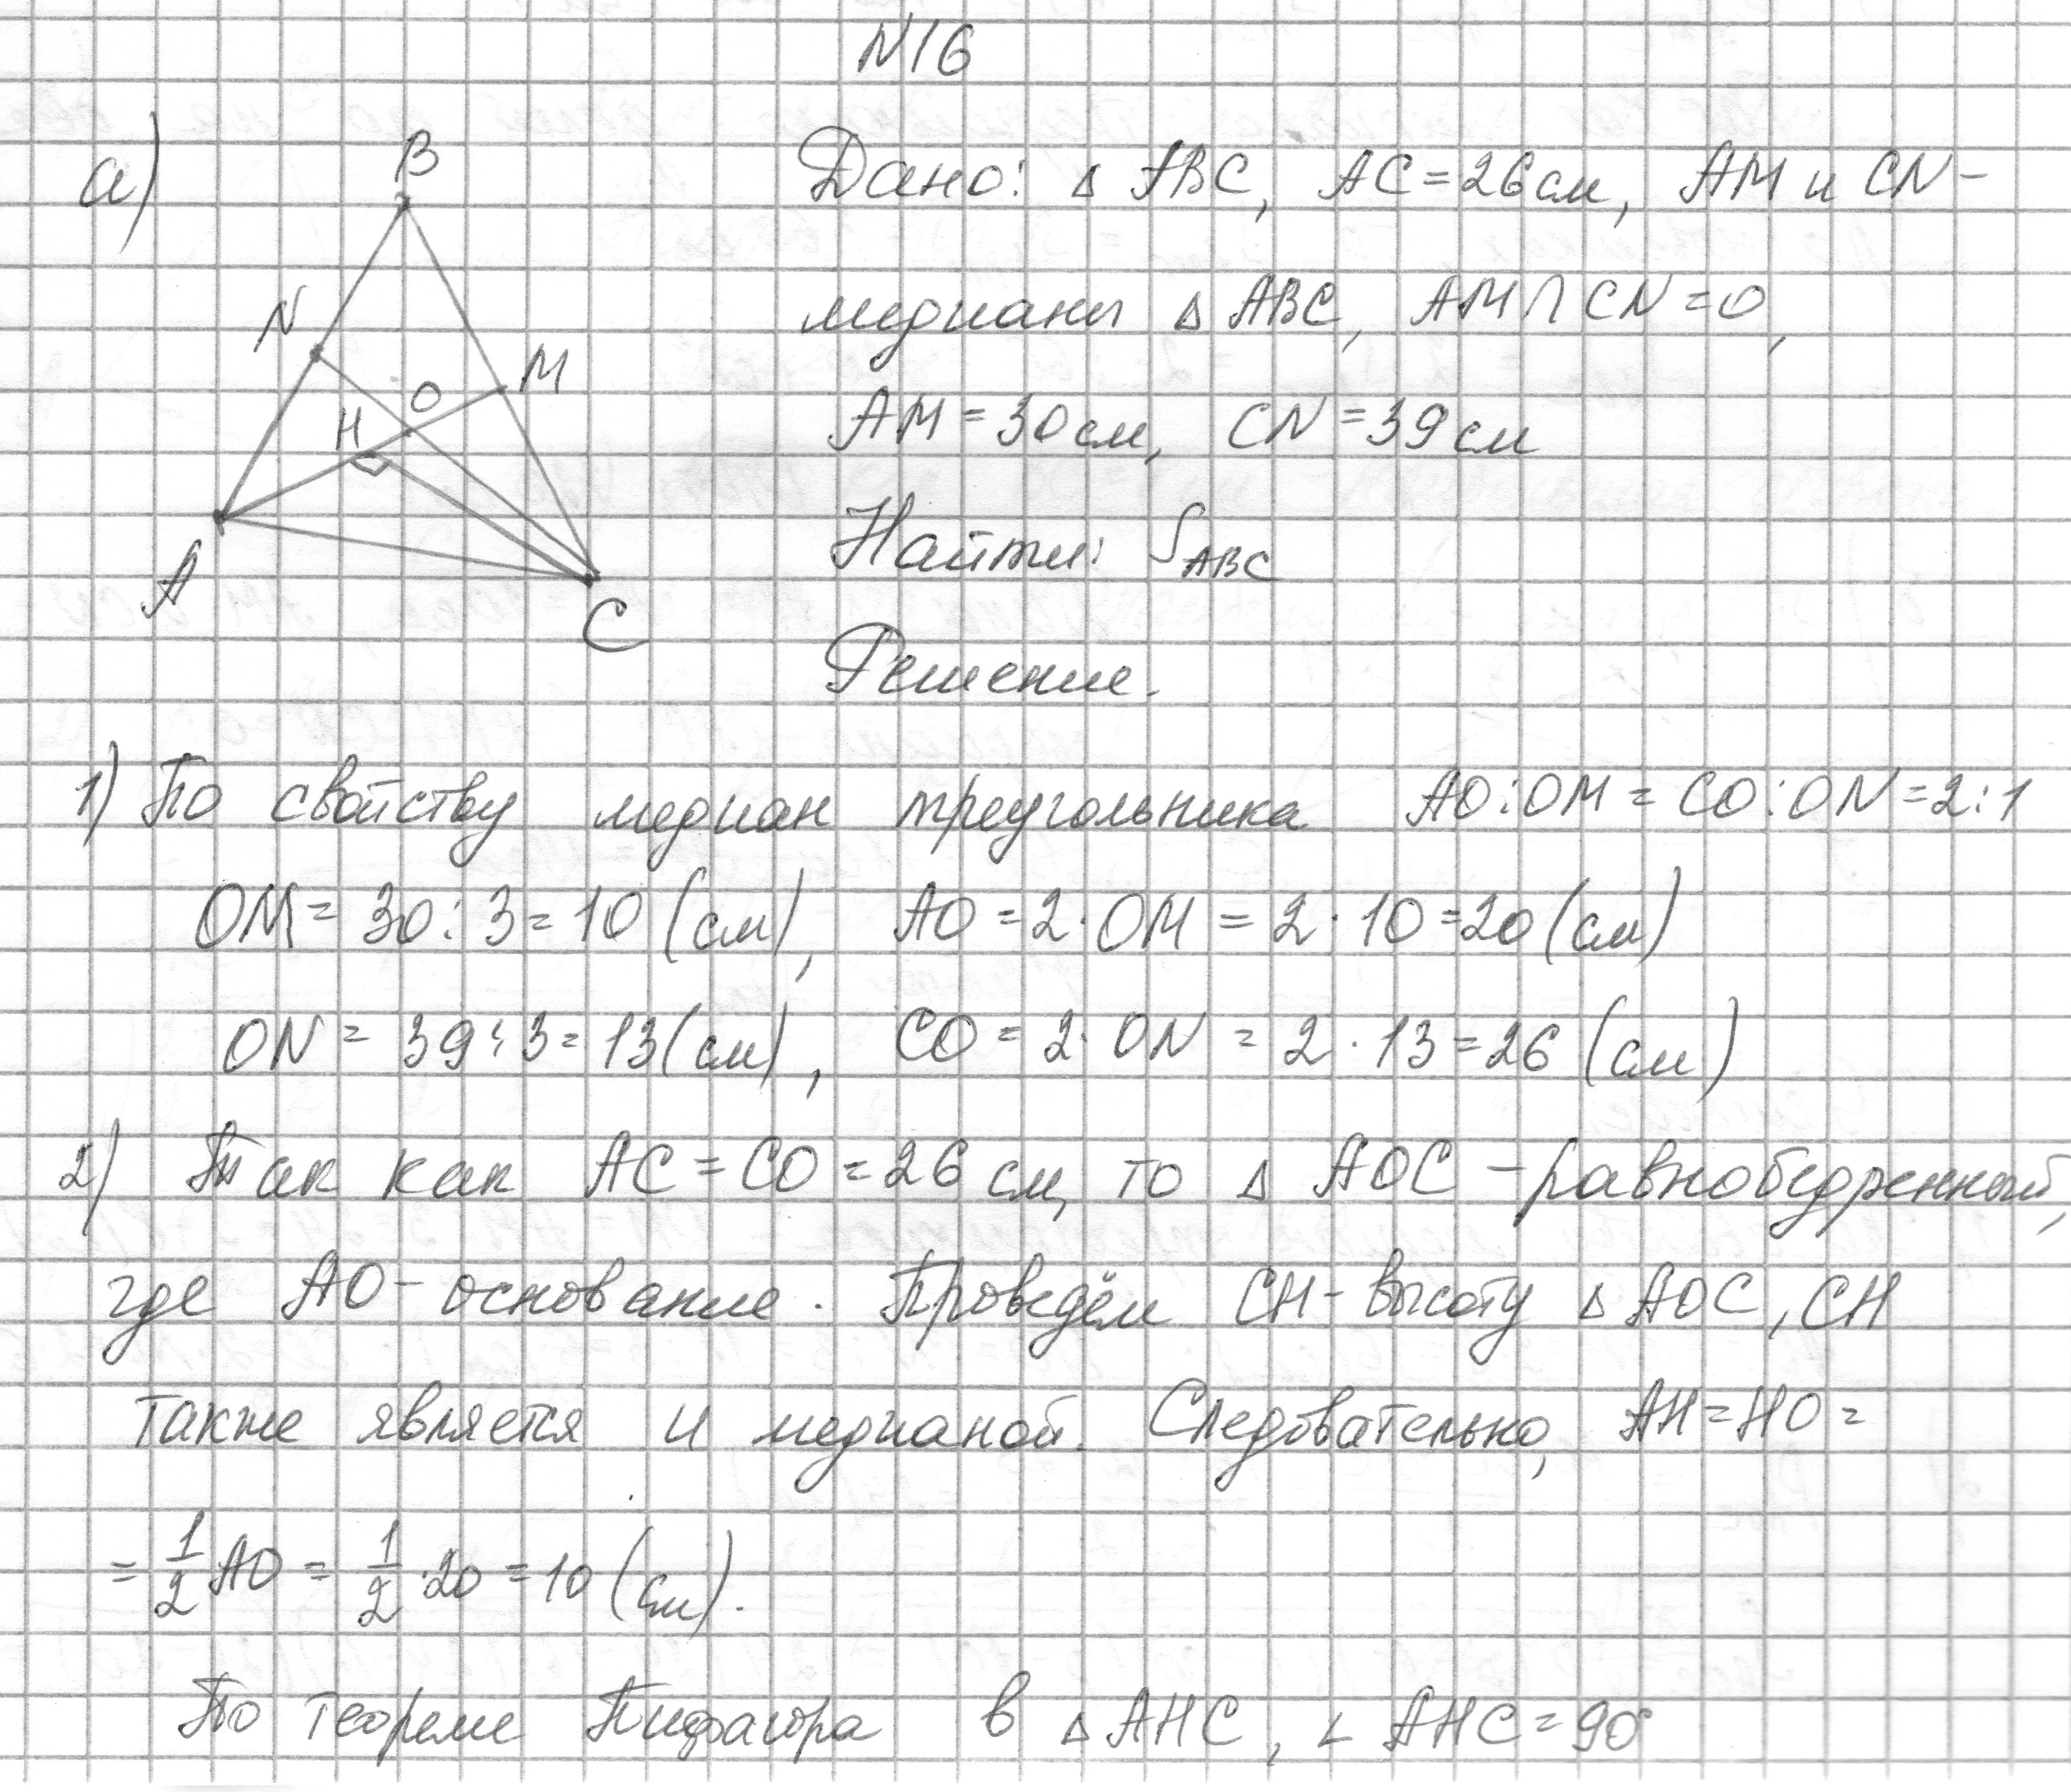 N16
а)
B
N
M
O
H
A
C
Дано: △ ABC, AC = 26 см, AM и CN -
медианы △ ABC, AM ∩ CN = O,
AM = 30 см, CN = 39 см
Найти: S_ABC
Решение.
1) По свойству медиан треугольника AO : OM = CO : ON = 2 : 1
OM = 30 : 3 = 10 (см), AO = 2 · OM = 2 · 10 = 20 (см)
ON = 39 : 3 = 13 (см), CO = 2 · ON = 2 · 13 = 26 (см)
2) Так как AC = CO = 26 см, то △ AOC - равнобедренный,
где AO - основание. Проведём CH - высоту △ AOC, CH
также является и медианой. Следовательно, AH = HO =
= 1/2 AO = 1/2 · 20 = 10 (см).
По теореме Пифагора в △ AHC, ∠ AHC = 90°